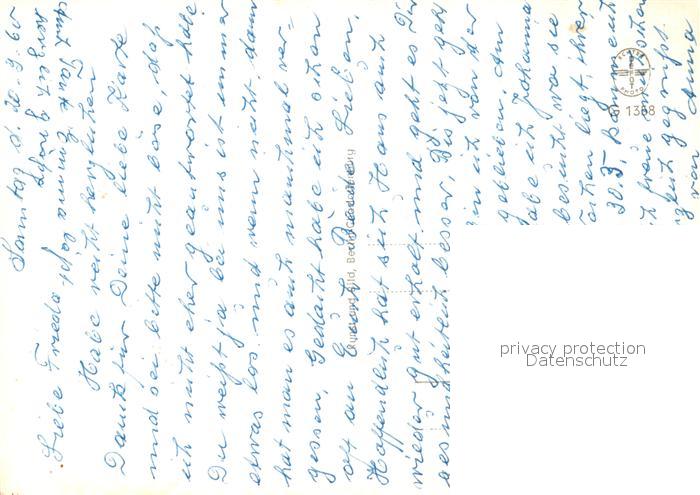 Samstag d. 20.3.65
Liebe Frieda
Habe recht herzlichen
Dank für Deine liebe Karte
und sei bitte nicht böse, daß
ich nicht eher geantwortet habe
Du weißt ja bei uns ist immer
etwas los und wenn nicht, dann
hat man es auch manchmal ver-
gessen. Gedacht habe ich schon
oft an Euch Lieben.
Hoffentlich hat sich Hans auch
wieder gut erholt und geht es Dir
gesundheitlich besser. Bis jetzt geht
ich von der
geblieben. An
habe ich Johanna
besucht wo sie
liegt, ihrer
30.3. kommen
ich freue mich schon
Euch gegrüßt
von Anna
und Tante
ECHTE PHOTO
G 1368
privacy protection
Datenschutz